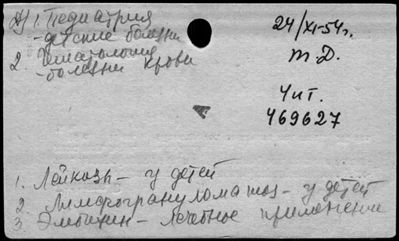 1. Педиатрия
- детские болезни
2. Гематология
- болезни крови
24/XI-54г.
т Д.
Чит.
469627
1. Лейкозы - у детей
2. Лимфогрануломатоз - у детей
3. Эмбихин - лечебное применение